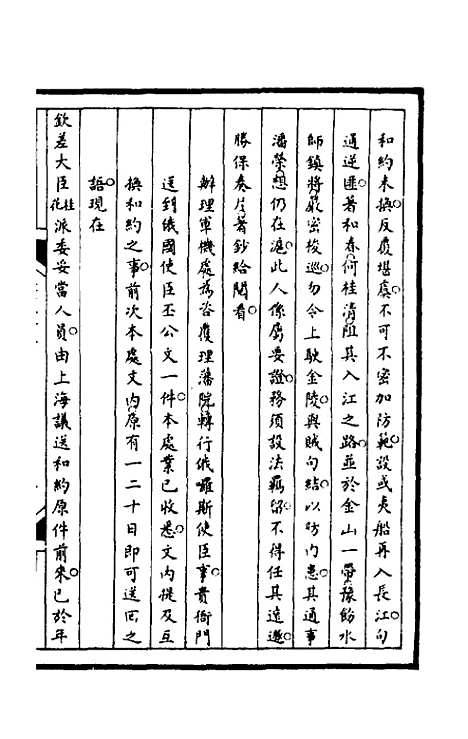 和約未換反覆堪虞不可不密加防範設或夷船再入長江勾
通逆匪著和春何桂清阻其入江之路並於金山一帶豫飭水
師鎮將嚴密梭巡勿令上駛金陵與賊勾結以防內患其通事
潘榮想仍在滬此人係屬要證務須設法羈留不得任其遠遯
勝保奏片著鈔給閱看
辦理軍機處為咨覆理藩院轉行俄囉斯使臣事貴衙門
送到俄國使臣丕公文一件本處業已收悉文內提及互
換和約之事前次本處文內原有一二十日即可送回之
語現在
欽差大臣桂花派委妥當人員由上海議送和約原件前來已於年